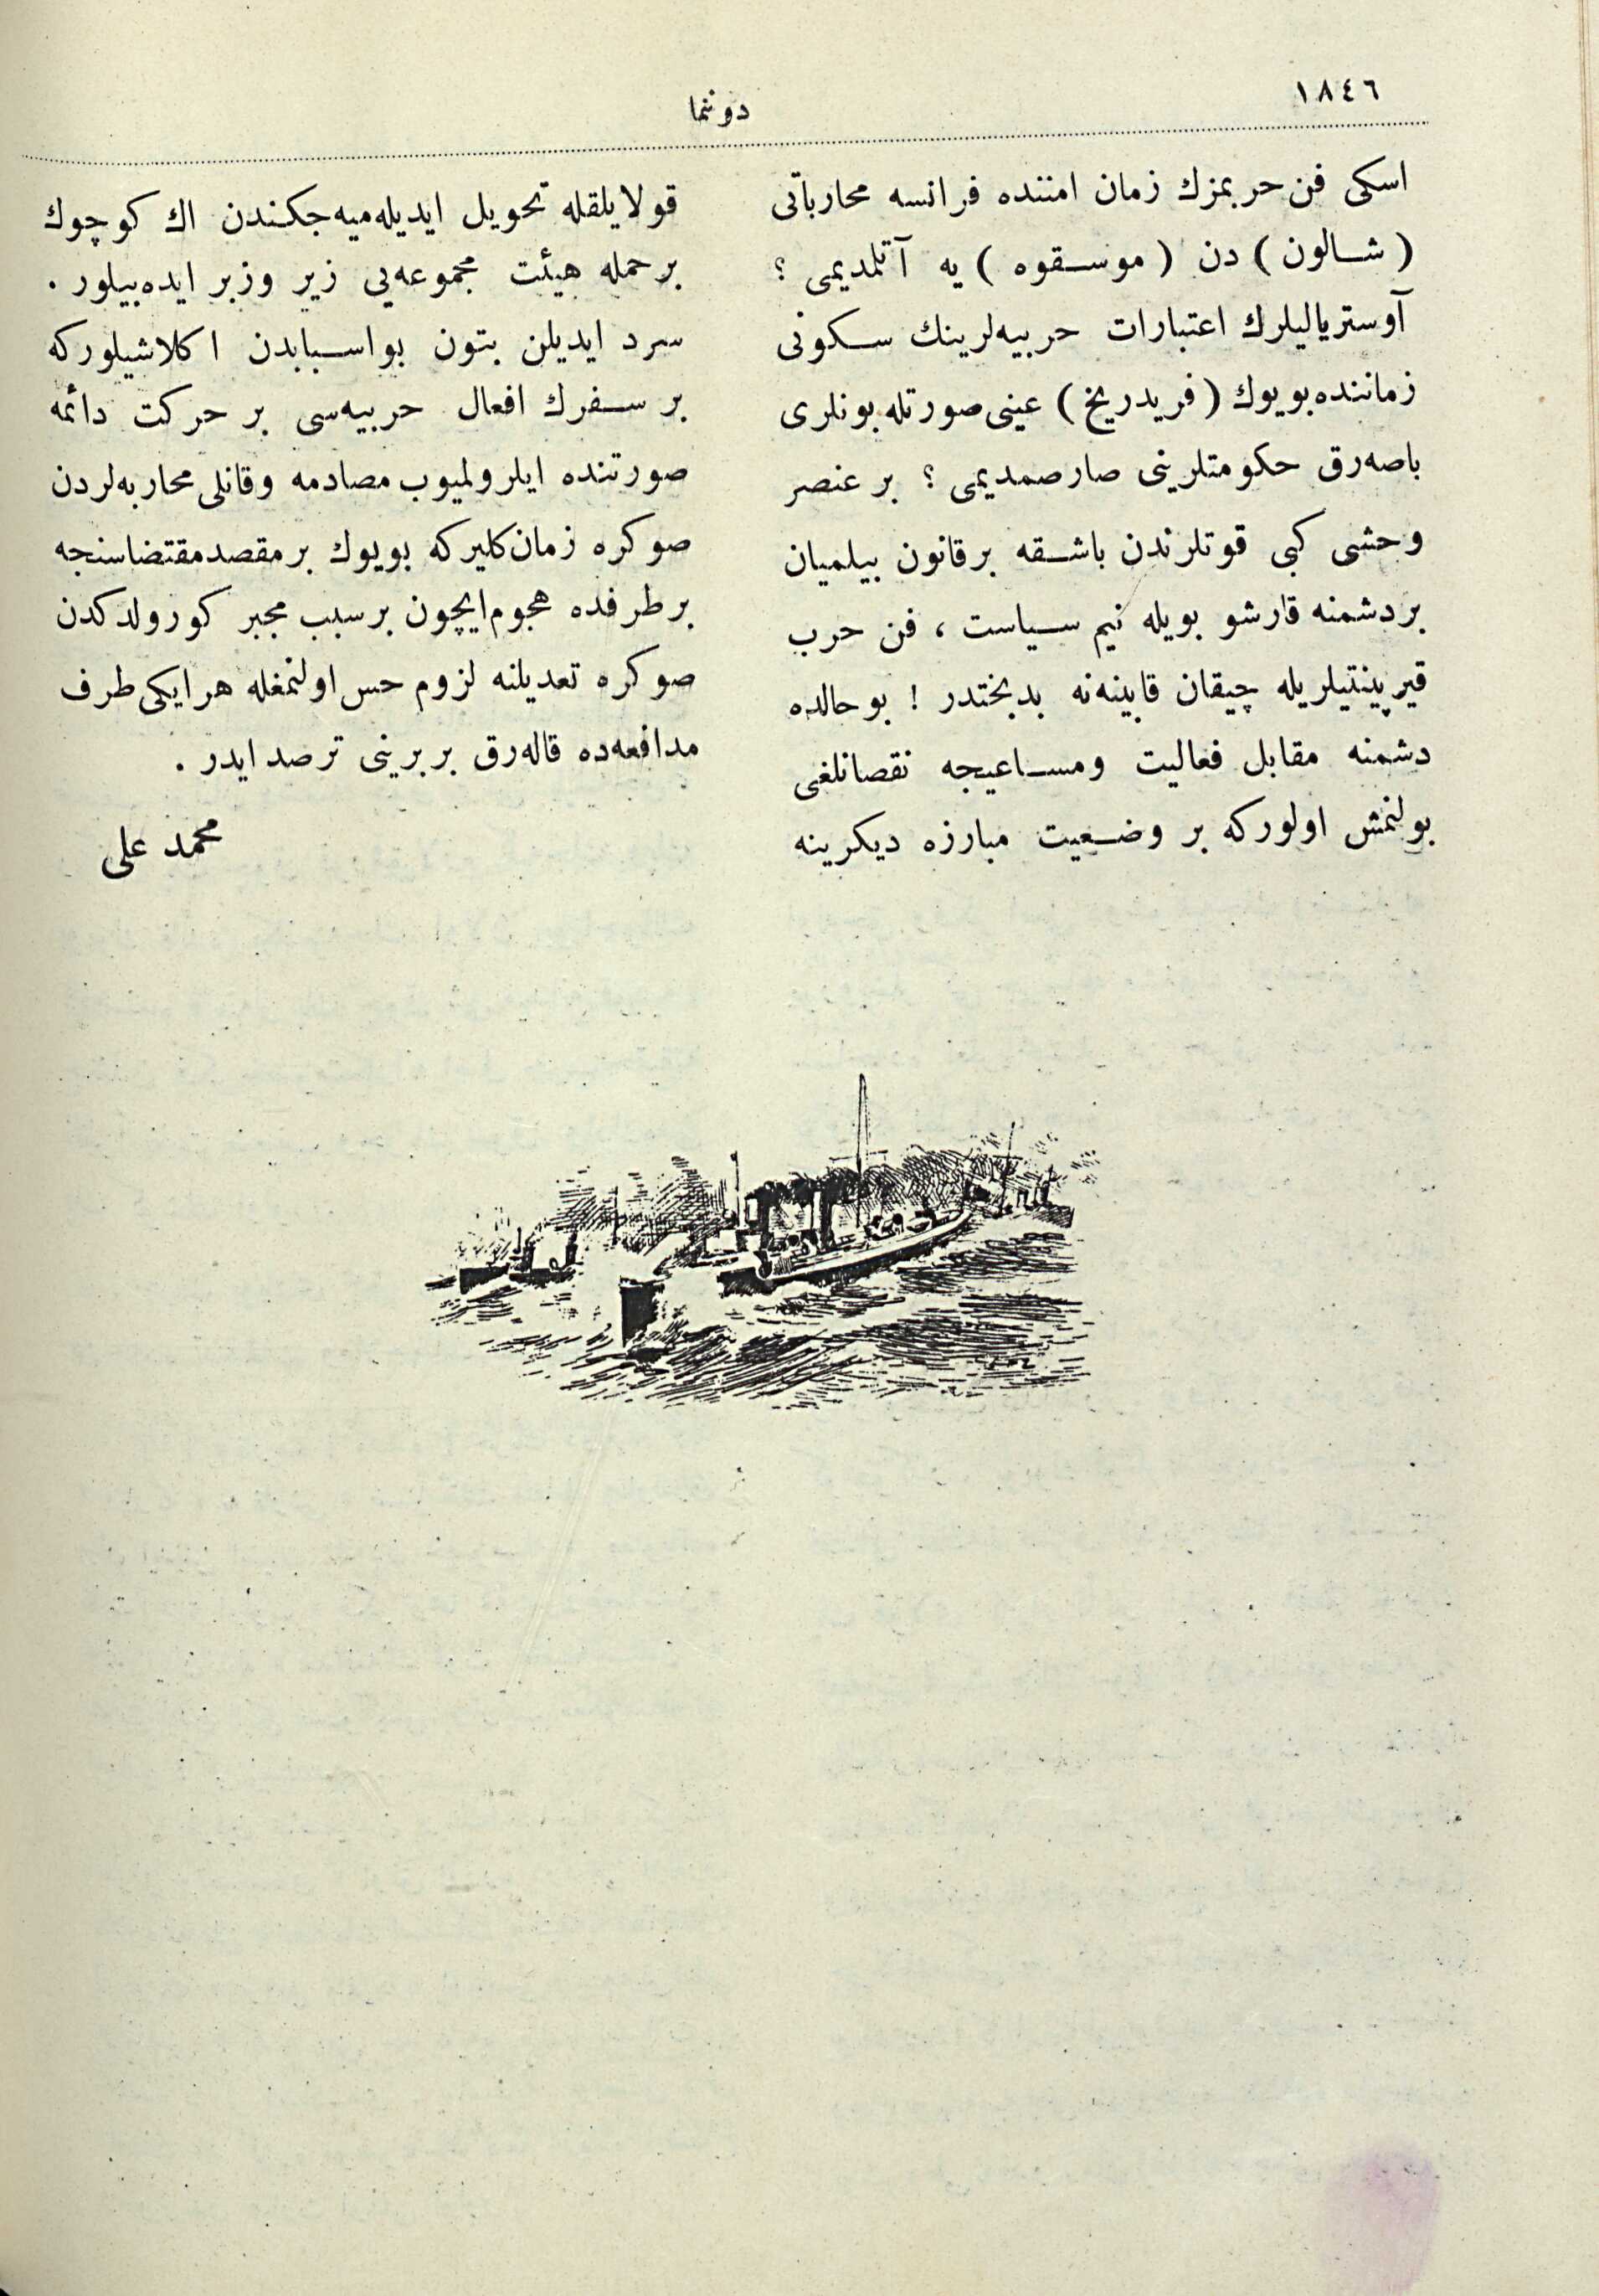 ١٨٤٦
دوننما
اسكی فن حربمزك زمان امننده فرانسه محارباتی
( شالون ) دن ( موسقوه ) یه آتلمدیمی ؟
آوستریالیلرك اعتبارات حربیه‌لرینك سكونی
زماننده بویوك ( فریدریخ ) عینی صورتله بونلری
باصه‌رق حكومتلرینی صارصمدیمی ؟ بر عنصر
وحشی كبی قوتلرندن باشقه بر قانون بیلمیان
بر دشمنه قارشو بویله نیم سیاست ، فن حرب
قیرپینتیلریله چیقان قابینه‌نه بدبختدر ! بو حالده
دشمنه مقابل فعالیت ومساعیجه نقصانلغی
بولنمش اولوركه بر وضعیت مبارزه دیكرینه
قولایلقله تحویل ایدیله‌میه‌جكندن اك كوچوك
بر حمله هیئت مجموعه‌یی زیر وزبر ایده‌بیلور .
سرد ایدیلن بتون بو اسبابدن اكلاشیلوركه
بر سفرك افعال حربیه‌سی بر حركت دائمه
صورتنده ایلرولمیوب مصادمه وقانلی محاربه‌لردن
صوكره زمان كلیركه بویوك بر مقصد مقتضاسنجه
بر طرفده هجوم ایچون بر سبب مجبر كورولدكدن
صوكره تعدیلنه لزوم حس اولنمغله هر ایكی طرف
مدافعه‌ده قاله‌رق بربرینی ترصد ایدر .
محمد علی